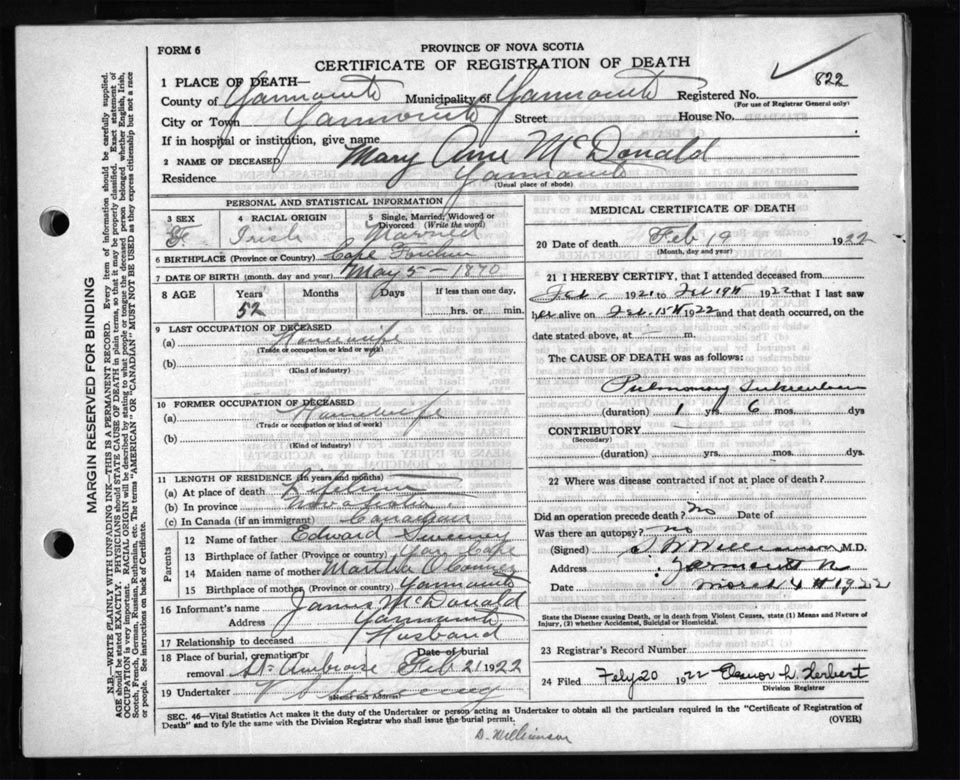 FORM 6
PROVINCE OF NOVA SCOTIA
CERTIFICATE OF REGISTRATION OF DEATH
822
1 PLACE OF DEATH—
County of Yarmouth Municipality of Yarmouth Registered No.
(For use of Registrar General only)
City or Town Yarmouth Street House No.
If in hospital or institution, give name
2 NAME OF DECEASED Mary Ann McDonald
Residence Yarmouth
(Usual place of abode)
PERSONAL AND STATISTICAL INFORMATION
3 SEX 4 RACIAL ORIGIN 5 Single, Married, Widowed or Divorced (Write the word)
F Irish Married
6 BIRTHPLACE (Province or Country) Cape Forchu
7 DATE OF BIRTH (month, day and year) May 5 - 1870
8 AGE Years Months Days If less than one day,
52 hrs. or min.
9 LAST OCCUPATION OF DECEASED
(a) Housewife
(Trade or occupation or kind or work)
(b)
(Kind of industry)
10 FORMER OCCUPATION OF DECEASED
(a) Housewife
(Trade or occupation or kind of work)
(b)
(Kind of industry)
11 LENGTH OF RESIDENCE (in years and months)
(a) At place of death Lifetime
(b) In province Nova Scotia
(c) In Canada (if an immigrant) Canadian
Parents
12 Name of father Edward Sweeney
13 Birthplace of father (Province or country) Yar Cape
14 Maiden name of mother Martha O'Connor
15 Birthplace of mother (Province or country) Yarmouth
16 Informant's name James McDonald
Address Yarmouth
17 Relationship to deceased Husband
18 Place of burial, cremation or removal St Ambrose Date of burial Feb 21 1922
19 Undertaker
(Name and Address)
MEDICAL CERTIFICATE OF DEATH
20 Date of death Feb 19 1922
(Month, day and year)
21 I HEREBY CERTIFY, that I attended deceased from
Feb. 1921 to Feb 19th 1922 that I last saw
her alive on Feb. 15th 1922 and that death occurred, on the
date stated above, at m.
The CAUSE OF DEATH was as follows:
Pulmonary Tuberculosis
(duration) 1 yrs. 6 mos. dys
CONTRIBUTORY
(Secondary)
(duration) yrs. mos. dys.
22 Where was disease contracted if not at place of death?
Did an operation precede death? No Date of
Was there an autopsy? no
(Signed) Williamson M.D.
Address Yarmouth N
Date March 4th 1922
State the Disease causing Death, or in death from Violent Causes, state (1) Means and Nature of Injury, (2) whether Accidental, Suicidal or Homicidal.
23 Registrar's Record Number
24 Filed Feby 20 1922 L. Herbert
Division Registrar
SEC. 46—Vital Statistics Act makes it the duty of the Undertaker or person acting as Undertaker to obtain all the particulars required in the "Certificate of Registration of
Death" and to fyle the same with the Division Registrar who shall issue the burial permit.
(OVER)
D. Williamson
MARGIN RESERVED FOR BINDING
N.B.—WRITE PLAINLY WITH UNFADING INK—THIS IS A PERMANENT RECORD. Every item of information should be carefully supplied.
AGE should be stated EXACTLY. PHYSICIANS should STATE CAUSE OF DEATH in plain terms, so that it may be properly classified. Exact statement of
OCCUPATION is very important. RACIAL ORIGIN will be described by stating to what people or tongue the deceased person belonged whether English, Irish,
Scotch, French, German, Russian, Ruthenian, etc. The terms "AMERICAN" OR "CANADIAN" MUST NOT BE USED as they express citizenship but not a race
or people. See instructions on back of Certificate.